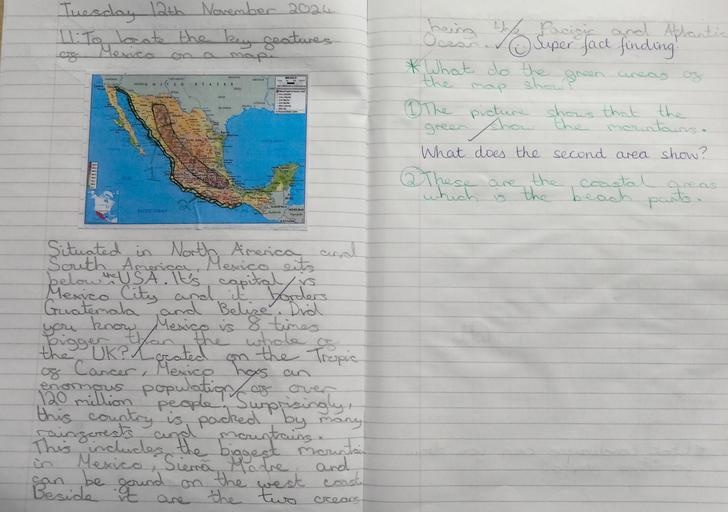 Tuesday 12th November 2024
LI: To locate the key features
of Mexico on a map.
MEXICO
UNITED STATES
PACIFIC OCEAN
1
2
Situated in North America and
South America, Mexico sits
below the USA. It's capital is
Mexico City and it borders
Guatemala and Belize. Did
you know Mexico is 8 times
bigger than the whole of
the UK? Located on the Tropic
of Cancer, Mexico has an
enormous population of over
120 million people! Surprisingly,
this country is packed by many
rainforests and mountains.
This includes the biggest mountain
in Mexico, Sierra Madre, and
can be found on the west coast.
Beside it are the two oceans
being the Pacific and Atlantic
Ocean. Super fact finding!
* What do the green areas of
the map show?
① The picture shows that the
green show the mountains.
What does the second area show?
② These are the coastal areas
which is the beach parts.